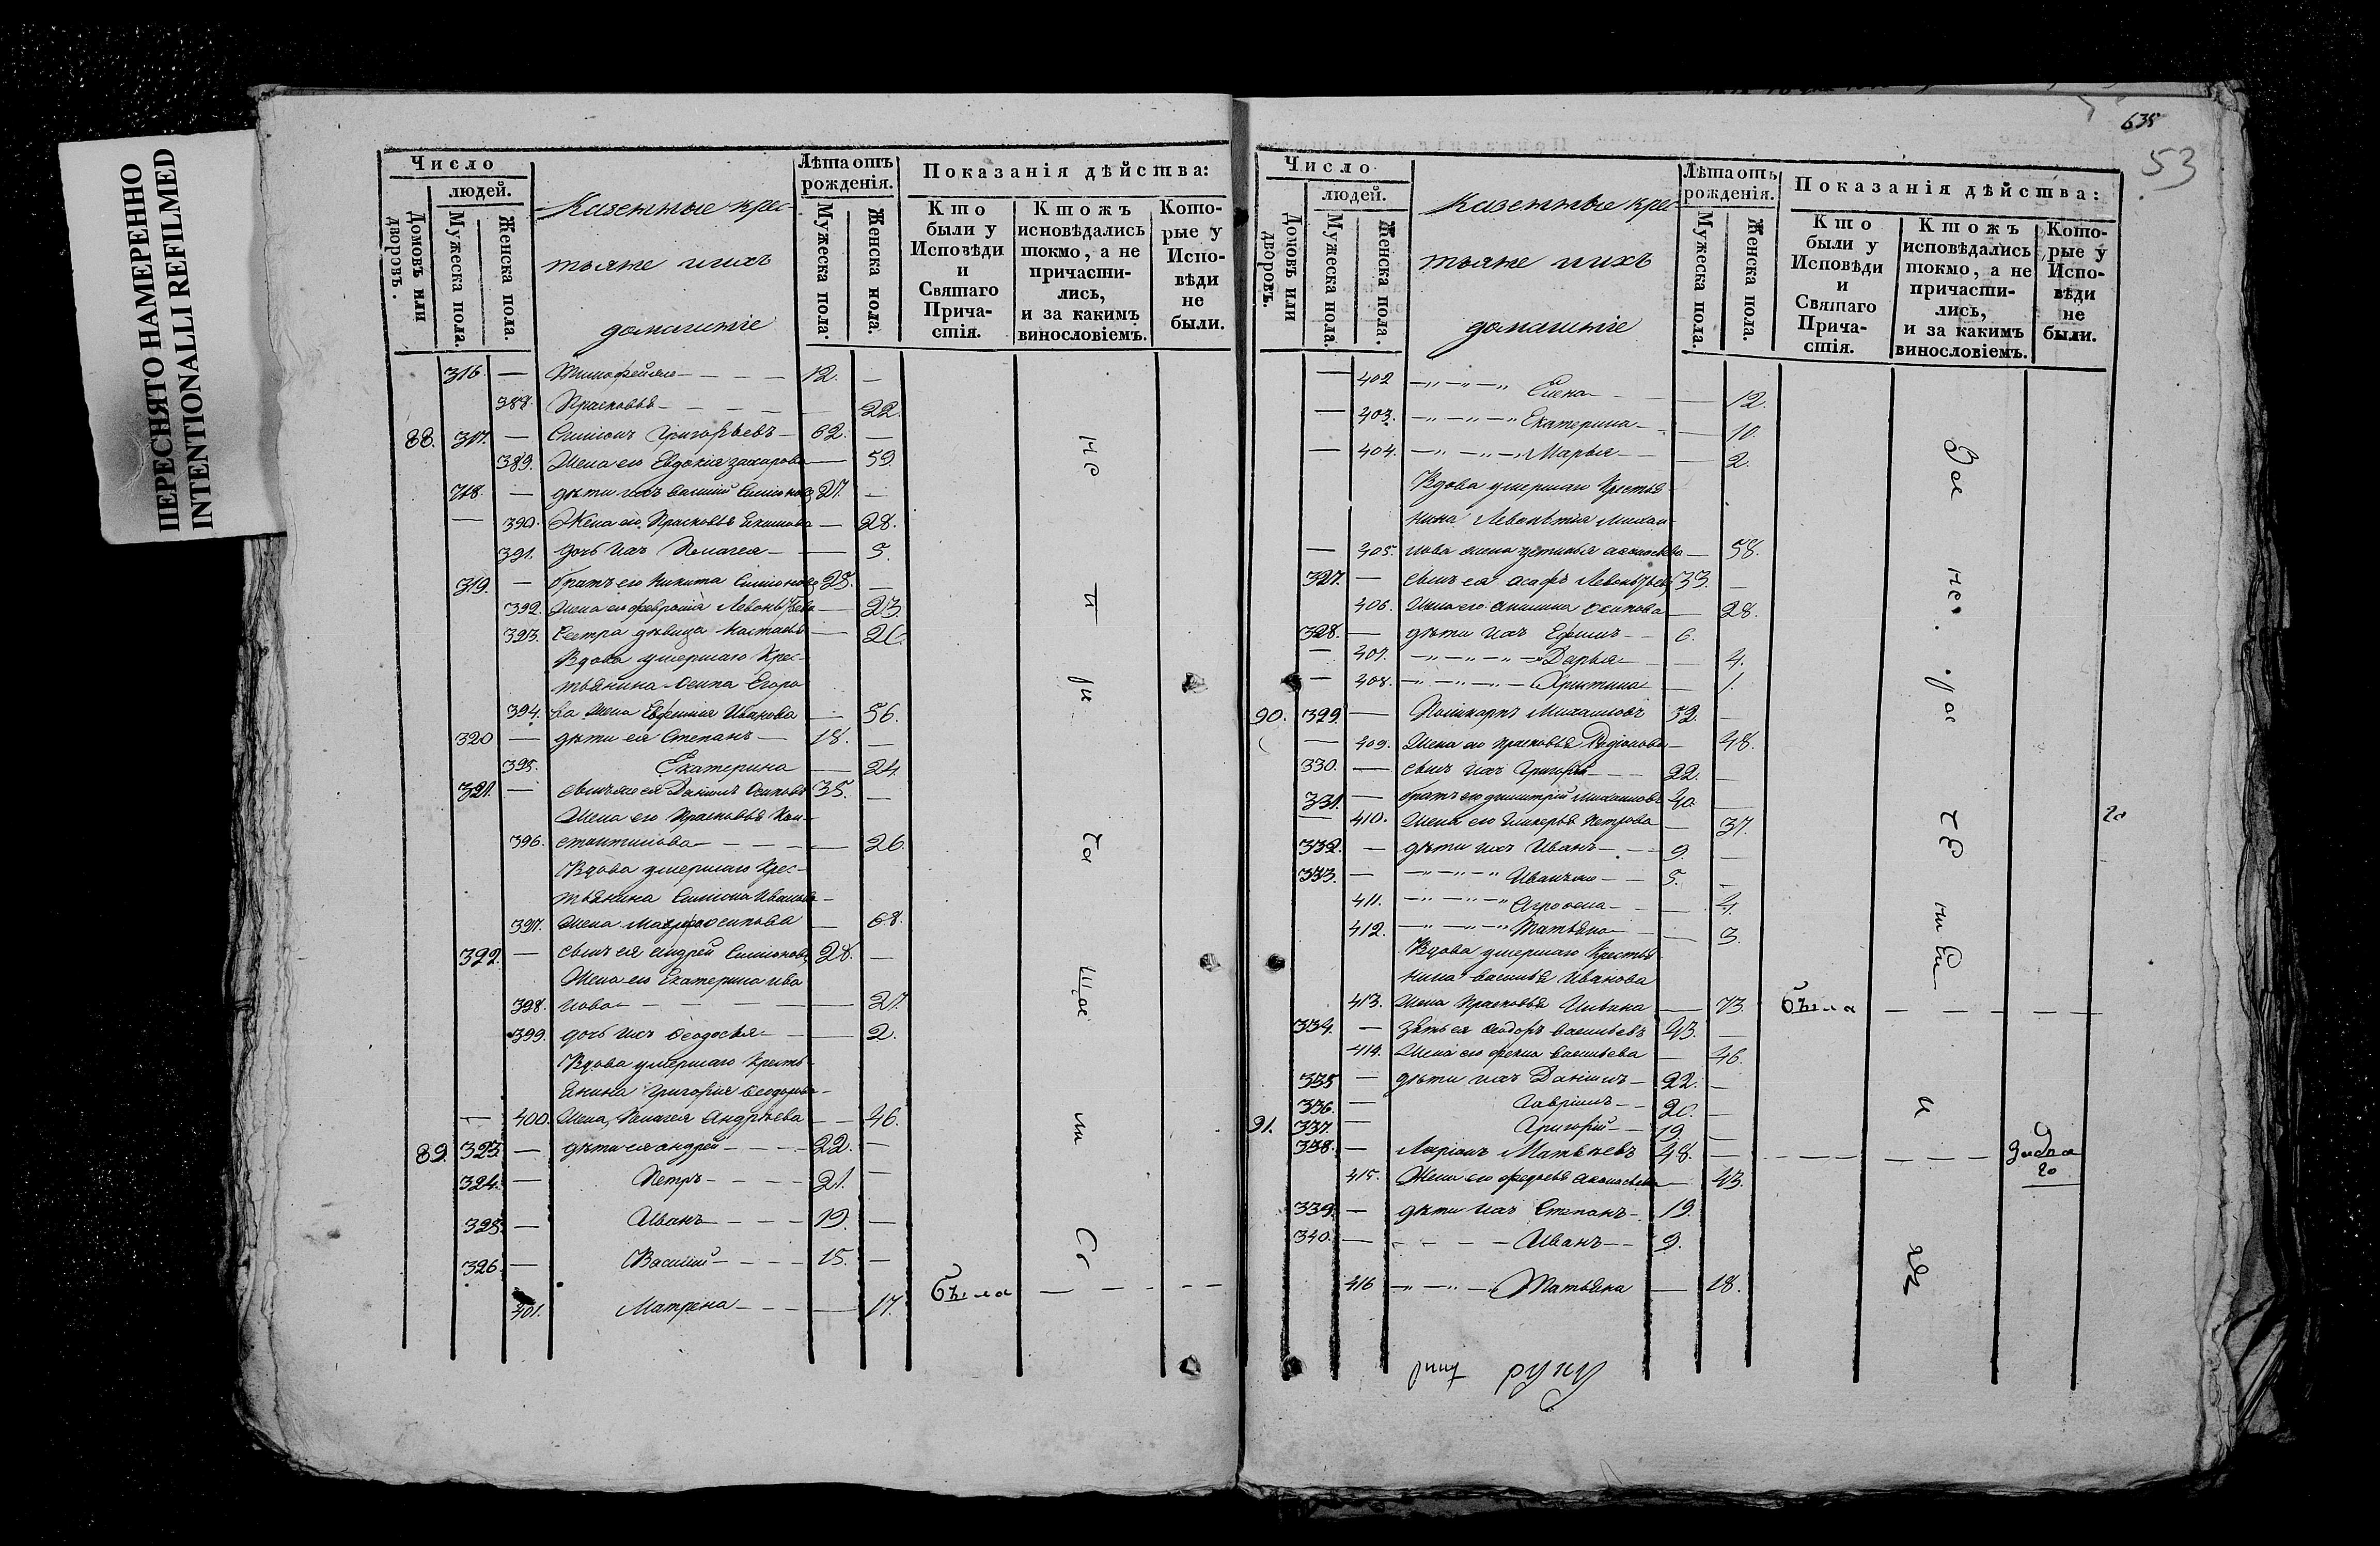 ПЕРЕСНЯТО НАМЕРЕННО
INTENTIONALLI REFILMED
Число
людей.
Домовъ или дворовъ.
Мужеска пола.
Женска пола.
Казенные крес-
тьяне и ихъ
домашніе
Лѣта отъ рожденія.
Мужеска пола.
Женска пола.
Показанія дѣйства:
Кто были у Исповѣди и Святаго Прича-стія.
Ктожъ исповѣдались токмо, а не причасти-лись, и за какимъ винословіемъ.
Кото-рые у Испо-вѣди не были.
316. — 12. —
388. Прасковья — 22.
88. 317. — Симіонъ Григорьевъ — 62. —
389. Жена его Евдокія Захарова — 59.
318. — дѣти ихъ Василій Симіоновъ 27. —
— 390. Жена его Прасковья Екимова — 28.
391. дочь ихъ Пелагея — 5.
319. — братъ его Никита Симіоновъ 25. —
392. Жена его Февронія Левонтьева — 23.
393. Сестра дѣвица Настасья — 26.
Вдова умершаго Крес-
тьянина Осипа Егоро
394. ва Жена Евфимія Иванова — 56.
320 — дѣти ея Степанъ — 18. —
395. Екатерина — 24.
321. — сынъ ея Даніилъ Осиповъ 35. —
Жена его Прасковья Кон-
396. стантинова — 26.
Вдова умершаго Крес-
тьянина Симіона Иванова
397. Жена Мавра Осипова — 68.
322. — сынъ ея Андрей Симіоновъ 28. —
Жена его Екатерина Ива
398. нова — 27.
399. дочь ихъ Ѳеодосья — 2.
Вдова умершаго Кресть-
янина Григорія Ѳеодорова
— 400. Жена Пелагея Андрѣева — 46.
89. 323. — дѣти ея Андрей — 22. —
324. — Петръ — 21. —
325. — Иванъ — 19. —
326. — Василій — 15. —
401. Матрена — 17. была — — —
635
53
Число
людей.
Домовъ или дворовъ.
Мужеска пола.
Женска пола.
Казенные крес-
тьяне и ихъ
домашніе
Лѣта отъ рожденія.
Мужеска пола.
Женска пола.
Показанія дѣйства:
Кто были у Исповѣди и Святаго Прича-стія.
Ктожъ исповѣдались токмо, а не причасти-лись, и за какимъ винословіемъ.
Кото-рые у Испо-вѣди не были.
— 402 — Елена — 12.
— 403. — Екатерина — 10.
— 404. — Марья — 2.
Вдова умершаго Крестья-
нина Левонтія Михаи-
— 405. лова жена Устинья — 58.
327. — сынъ ея Асафъ Левонтьевъ 33. —
406. Жена его Акилина Осипова — 28.
328. — дѣти ихъ Ефимъ — 6.
— 407. — Дарья — 4.
— 408. — Христина — 1.
90. 329. — Поликарпъ Михаиловъ 52. —
— 409. Жена его Прасковья Родіонова — 48.
330. — сынъ ихъ Григорій — 22. —
331. — братъ его Димитрій Михаиловъ 40. —
410. Жена его Гликерья Петрова — 37.
332. — дѣти ихъ Иванъ — 9. —
333. — 5. —
411. — 4.
412. — Татьяна — 3.
Вдова умершаго Крестья
нина Василья Иванова
413. Жена Прасковья — 73. была — — — — —
334. — зять ея Ѳеодоръ Васильевъ 43. —
414. Жена его Васильева — 46.
335 — дѣти ихъ Даніилъ — 22. —
336. — Гавріилъ — 20. —
91. 337. — Григорій — 19. —
338. — Ларіонъ Матвѣевъ 48. — — — — —
415. Жена его Федосья — 43.
339. — дѣти ихъ Степанъ — 19.
340. — Иванъ — 9.
416 — Татьяна — 18.
руку